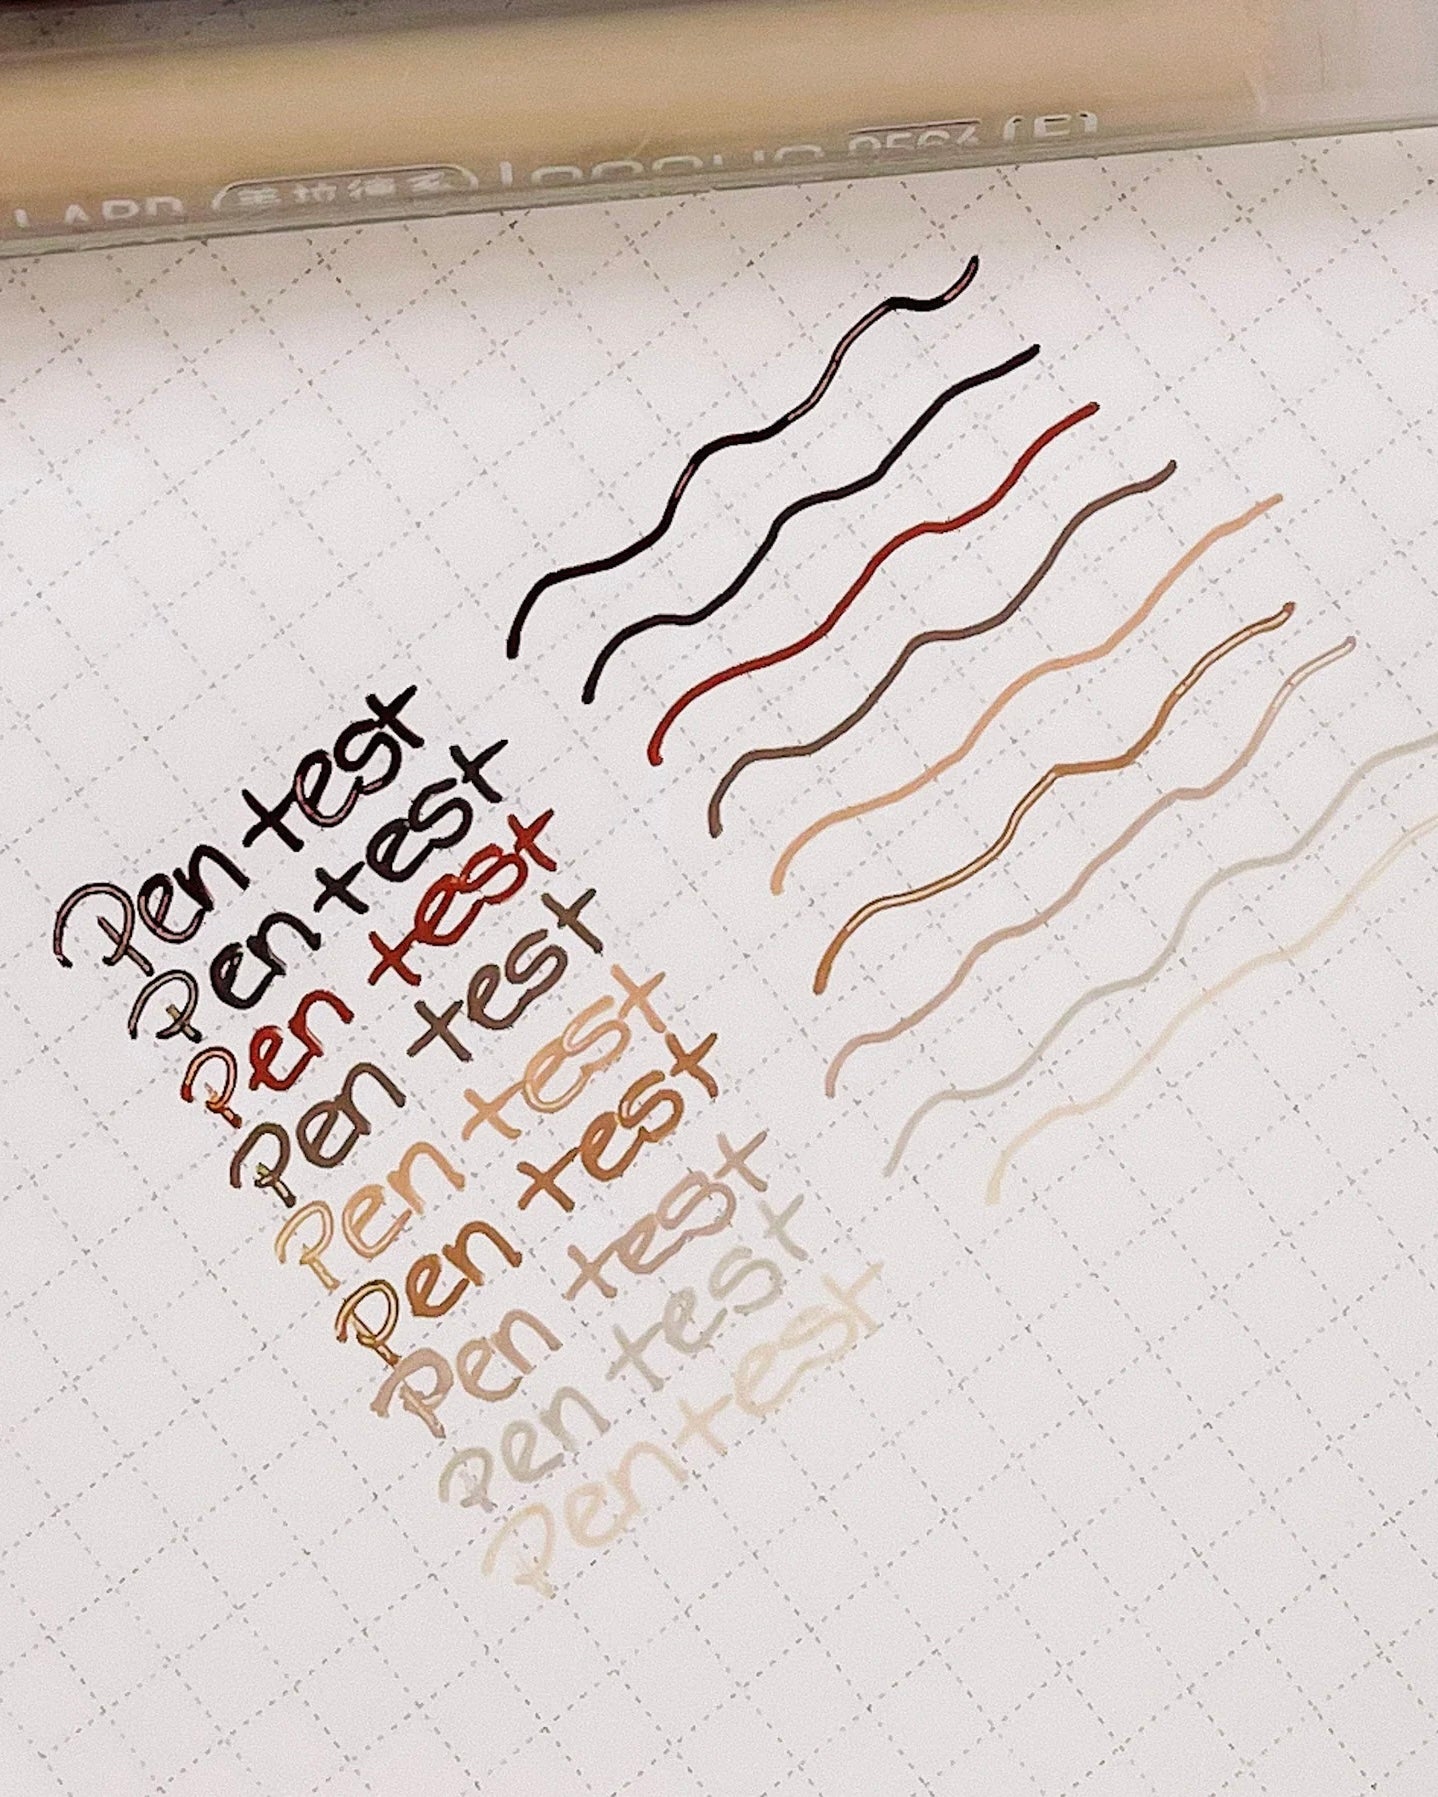 Pen test
Pen test
Pen test
Pen test
Pen test
Pen test
Pen test
Pen test
Pen test